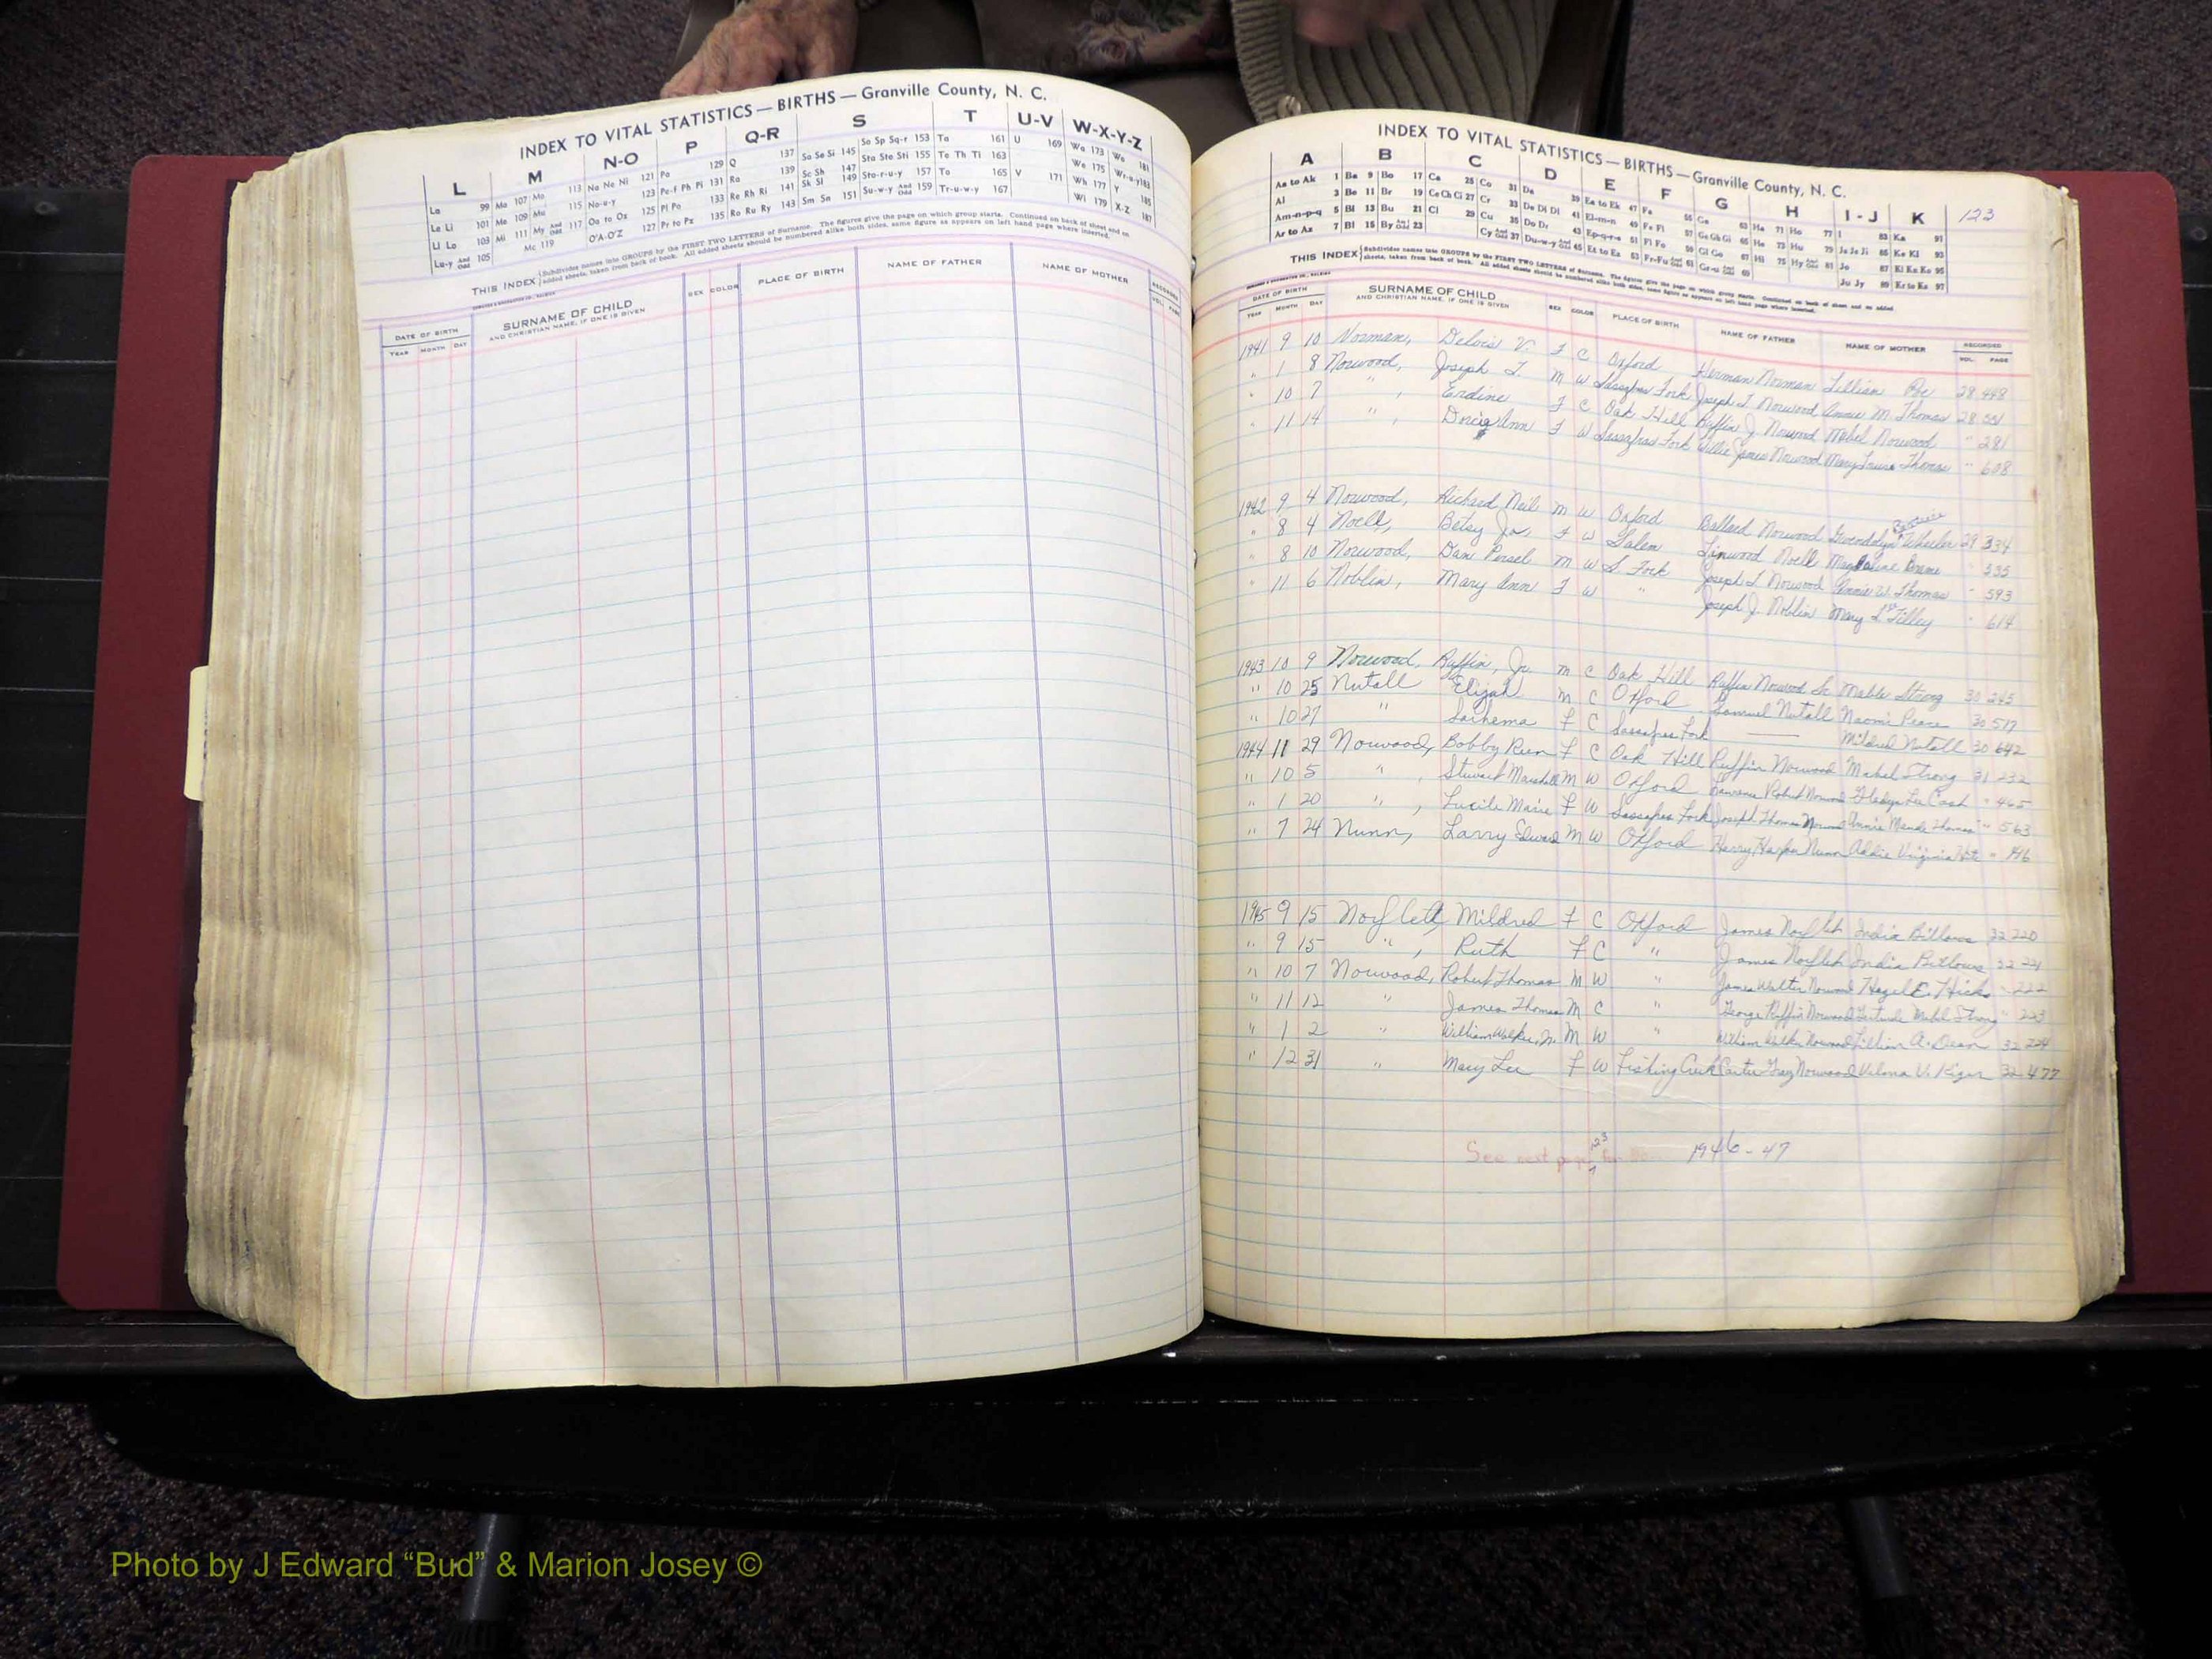 INDEX TO VITAL STATISTICS — BIRTHS — Granville County, N. C.
L M N-O P Q-R S T U-V W-X-Y-Z
La 99 Ma 107 Mo 113 Na Ne Ni 121 Pa 129 Q 137 Sa Se Si 145 So Sp Sq-r 153 Ta 161 U 169 Wa 173 Wo 181
Le Li 101 Me 109 Mu 115 No-u-y 123 Pe-f Ph Pi 131 Ra 139 Sc Sh 147 Sta Ste Sti 155 Te Th Ti 163 We 175 Wr-u-y 183
Ll Lo 103 Mi 111 My And Odd 117 Oa to Oz 125 Pl Po 133 Re Rh Ri 141 Sk Sl 149 Sto-r-u-y 157 To 165 V 171 Wh 177 Y 185
Lu-y And Odd 105 Mc 119 O'A-O'Z 127 Pr to Pz 135 Ro Ru Ry 143 Sm Sn 151 Su-w-y And Odd 159 Tr-u-w-y 167 Wi 179 X-Z 187
THIS INDEX Subdivides names into GROUPS by the FIRST TWO LETTERS of Surname. The figures give the page on which group starts. Continued on back of sheet and on
added sheets, taken from back of book. All added sheets should be numbered alike both sides, same figure as appears on left hand page where inserted.
DATE OF BIRTH SURNAME OF CHILD SEX COLOR PLACE OF BIRTH NAME OF FATHER NAME OF MOTHER RECORDED
YEAR MONTH DAY AND CHRISTIAN NAME, IF ONE IS GIVEN VOL. PAGE
INDEX TO VITAL STATISTICS — BIRTHS — Granville County, N. C.
A B C D E F G H I - J K 123
Aa to Ak 1 Ba 9 Bo 17 Ca 25 Co 31 Da 39 Ea to Ek 47 Fa 55 Ga 63 Ha 71 Ho 77 I 83 Ka 91
Al 3 Be 11 Br 19 Ce Ch Ci 27 Cr 33 De Di Dl 41 El-m-n 49 Fe Fi 57 Ge Gh Gi 65 He 73 Hu 79 Ja Je Ji 85 Ke Kl 93
Am-n-p-q 5 Bl 13 Bu 21 Cl 29 Cu 35 Do Dr 43 Ep-q-r-s 51 Fl Fo 59 Gl Go 67 Hi 75 Hy And Odd 81 Jo 87 Ki Kn Ko 95
Ar to Az 7 Bl 15 By And Odd 23 Cy And Odd 37 Du-w-y And Odd 45 Et to Ez 53 Fr-Fu And Odd 61 Gr-u And Odd 69 Ju Jy 89 Kr to Kz 97
THIS INDEX Subdivides names into GROUPS by the FIRST TWO LETTERS of Surname. The figures give the page on which group starts. Continued on back of sheet and on added
sheets, taken from back of book. All added sheets should be numbered alike both sides, same figure as appears on left hand page where inserted.
DATE OF BIRTH SURNAME OF CHILD SEX COLOR PLACE OF BIRTH NAME OF FATHER NAME OF MOTHER RECORDED
YEAR MONTH DAY AND CHRISTIAN NAME, IF ONE IS GIVEN VOL. PAGE
1941 9 10 Norman, Delois V. F C Oxford Herman Norman Lillian Poe 28 448
" 1 8 Norwood, Joseph T. M W Sassafras Fork Joseph T. Norwood Annie M. Thomas 28 551
" 10 7 " , Erdine F C Oak Hill Ruffin J. Norwood Mabel Norwood " 281
" 11 14 " , Ann F W Sassafras Fork Willie James Norwood Mary Louise Thomas " 608
1942 9 4 Norwood, Richard Neil M W Oxford Ballard Norwood Gwendolyn Wheeler 29 334
" 8 4 Noell, Betsy Jo, F W Salem Linwood Noell 335
" 8 10 Norwood, Dan Persel M W S. Fork Joseph T. Norwood Annie W. Thomas " 593
" 11 6 Noblin, Mary Ann F W " Joseph J. Noblin Mary L. Tilley " 614
1943 10 9 Norwood, Ruffin, Jr. M C Oak Hill Ruffin Norwood Sr. Mable Strong 30 245
" 10 25 Nutall Elijah M C Oxford Samuel Nutall Naomi 30 517
" 10 27 " Lachema F C Sassafras Fork —— Mildred Nutall 30 642
1944 11 29 Norwood, Bobby F C Oak Hill Ruffin Norwood Mabel Strong 31 232
" 10 5 " , Stuart Marshall M W Oxford Lawrence Robert Norwood Gladys Lee Cash " 465
" 1 20 " , Lucile Marie F W Sassafras Fork Joseph Thomas Norwood Annie Maude Thomas " 563
" 7 24 Nunn, Larry Edward M W Oxford Harry Nunn Addie Virginia " 146
1945 9 15 Norflett, Mildred F C Oxford James Norflett India 32 220
" 9 15 " , Ruth F C " James Norflett India 32 221
" 10 7 Norwood, Robert Thomas M W " James Walter Norwood Hazel E. Hicks " 222
" 11 12 " James Thomas M C " George Ruffin Norwood Gertrude Mabel Strong " 223
" 1 2 " William Walker, Jr. M W " William Walker Norwood Lillian A. Dean 32 224
" 12 31 " Mary Lee F W Fishing Creek Carter Gray Norwood Velma V. 32 477
See next page for 1946-47
Photo by J Edward “Bud” & Marion Josey ©